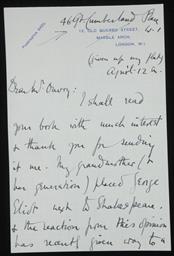 46 Gt Cumberland Place
W.1
12, OLD QUEBEC STREET,
MARBLE ARCH,
LONDON, W.1
(Given up my flat)
April 12
Dear Mr
I shall read
your book with much interest
& thank you for sending
it me. My grandmother (&
her generation) placed George
Eliot next to Shakespeare.
& the reaction from this opinion
has recently given way to a